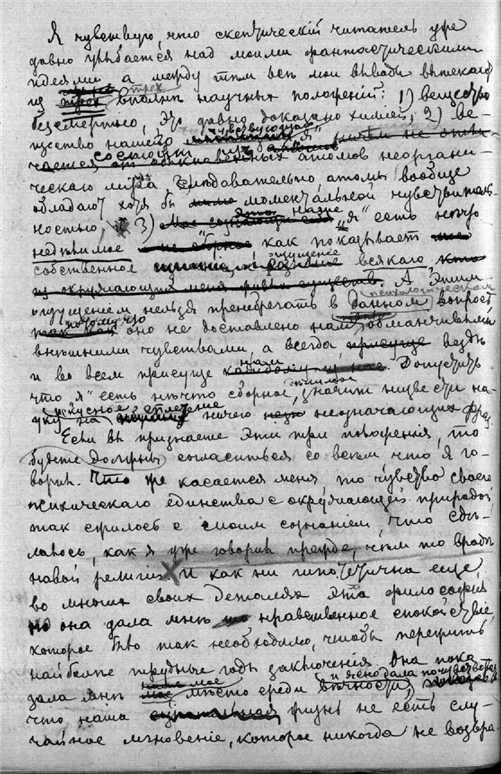 Я чувствую, что скептическій читатель уже
давно улыбается надъ моими фантастическими
идеями, а между тѣмъ всѣ мои выводы вытекаютъ
изъ трехъ вполнѣ научныхъ положеній: 1) вещество
безсмертно, это давно доказано химіей; 2) ве-
щество нашего чувствующаго „я“
состоитъ изъ атомовъ неоргани-
ческаго міра, слѣдовательно атомы вообще
обладаютъ хотя бы моментальной чувствитель-
ностью, 3) наше „я“ есть нѣчто
недѣлимое какъ показываетъ
собственное ощущеніе всякаго
А этимъ
ощущеніемъ нельзя пренебрегать въ данномъ психологическомъ вопросѣ
потому что оно не доставлено намъ обманчивыми
внѣшними чувствами, а всегда, вездѣ
и во всемъ присуще намъ. Допустить
что „я“ есть нѣчто сборное, значитъ низвести на-
уку на искусное сплетеніе ничего неозначающихъ фразъ.
Если вы признаете эти три положенія, то
будете должны согласиться со всѣмъ что я го-
ворилъ. Что же касается меня, то чувство своего
психическаго единства съ окружающей природой
такъ сжилось съ моимъ сознаніемъ, что сдѣ-
лалось, какъ я уже говорилъ прежде, чѣмъ то вродѣ
новой религіи. И какъ ни гипотетична еще
во многихъ своихъ деталяхъ эта философія
но она дала мнѣ нравственное спокойствіе,
которое было такъ необходимо, чтобы пережить
наиболѣе трудные годы заключенія. Она пока-
зала мнѣ мое мѣсто среди вѣчности, и ясно дала почувствовать
что наша жизнь не есть слу-
чайное мгновеніе, которое никогда не возвра-